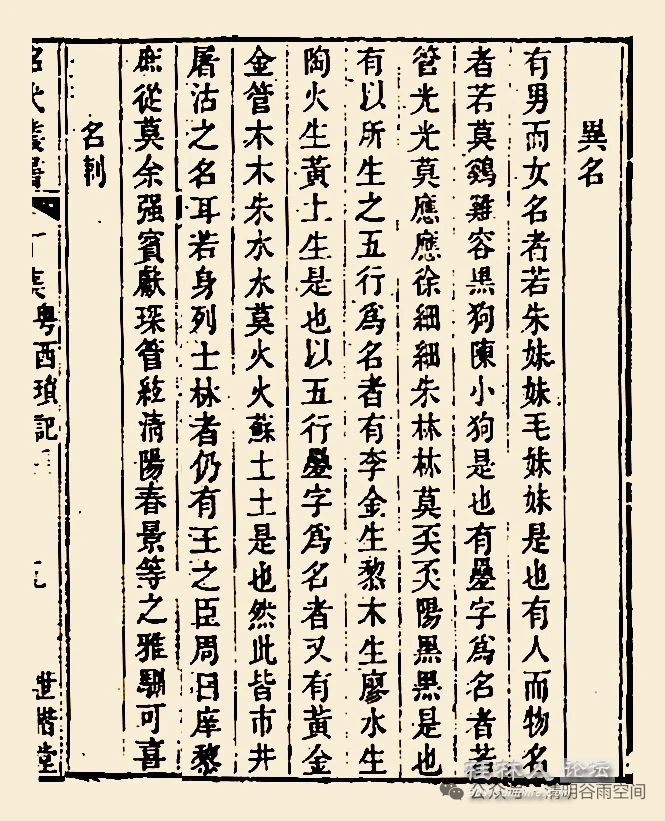 異名
有男而女名者若朱妹妹毛妹妹是也有人而物名
者若莫容黑狗陳小狗是也有疊字爲名者若
管光光莫應應徐細細朱林林莫奀奀陽黑黑是也
有以所生之五行爲名者有李金生黎木生廖水生
陶火生黃土生是也以五行疊字爲名者又有黃金
金管木木朱水水莫火火蘇土土是也然此皆市井
屠沽之名耳若身列士林者仍有王之臣周日庠黎
庶從莫余强賓獻琛管清陽春景等之雅馴可喜
名刺
代叢書 集粵西瑣記 世楷堂
桂林人 论坛
公众号 · 清明谷雨空间